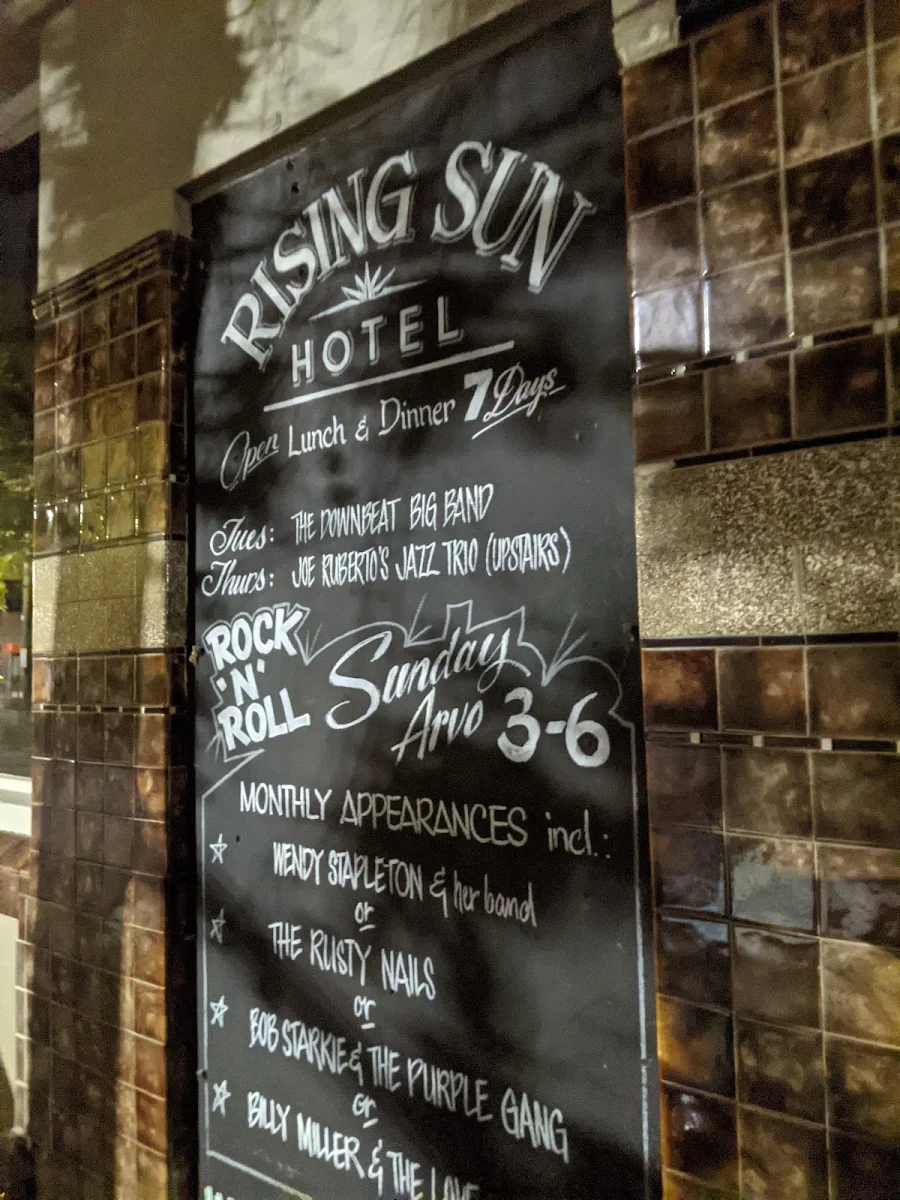 RISING SUN
HOTEL
Open Lunch & Dinner 7 Days
Tues: THE DOWNBEAT BIG BAND
Thurs: JOE RUBERTO'S JAZZ TRIO (UPSTAIRS)
ROCK
'N'
ROLL
Sunday
Arvo 3-6
MONTHLY APPEARANCES incl.:
☆ WENDY STAPLETON & her band
or
☆ THE RUSTY NAILS
or
☆ BOB STARKIE & THE PURPLE GANG
or
☆ BILLY MILLER & THE